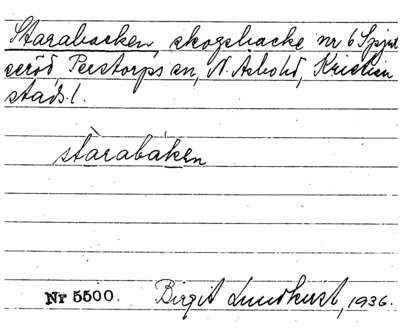 Starabacken, skogsbacke nr 6 Spjut
seröd, Perstorps sn, N. Åsbohd, Kristian
stads l.
stàrabáken
Nr 5500. Birgit Lundkvist, 1936.